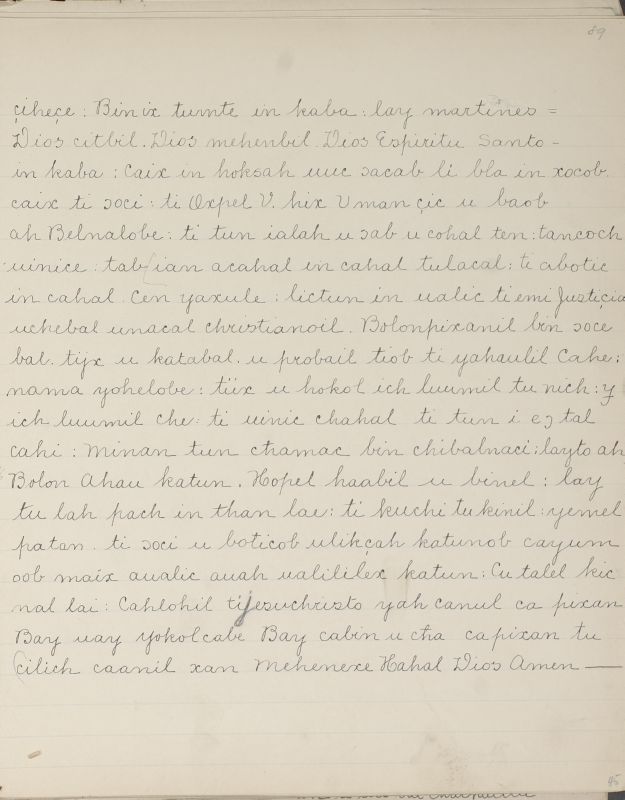 89
çiheçe : Binix turnte in kaba : lay martines =
Dios citbil . Dios mehenbil . Dios Espiritu Santo -
in kaba : Caix in hoksah uuc ɔacab li bla in xocob.
caix ti ɔoci : ti Oxpel V. hix Uman çic u baob
ah Belnalobe : ti tun ialah u ɔab u cohal ten : tancoch
uinice : tab ian acahal in cahal tulacal : ti abotic
in cahal . Cen yaxule : lictun in ualic ti emi Justiçia
uchebal unacal christianoil . Bolonpixanil bin ɔoce
bal . tijx u katabal . u probail tiob ti yahaulil Cahe ;
nama yohelobe : tiix u hokol ich luumil tunich : y
ich luumil che : ti uinic chahal ti tun i eɔ tal
cahi : minan tun chamac bin chibalnaci ; layto ah
Bolon Ahau katun . Hopel haabil u binel : lay
tu lah pach in than lae : ti kuchi tu kinil : yemel
patan . ti ɔoci u boticob ulikçah katunob cayum
oob maix aualic auah ualililex katun : Cu talel kic
nal lai : Cahlohil ti Jesuchristo yah canul ca pixan
Bay uay yokolcabe Bay cabin u cha capixan tu
çilich caanil xan mehenexe Hahal Dios Amen —
45